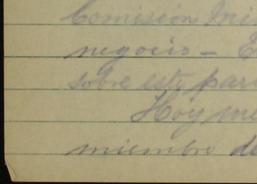 Comisión Mi
negocio - E
sobre este par
Hoy me
miembro de